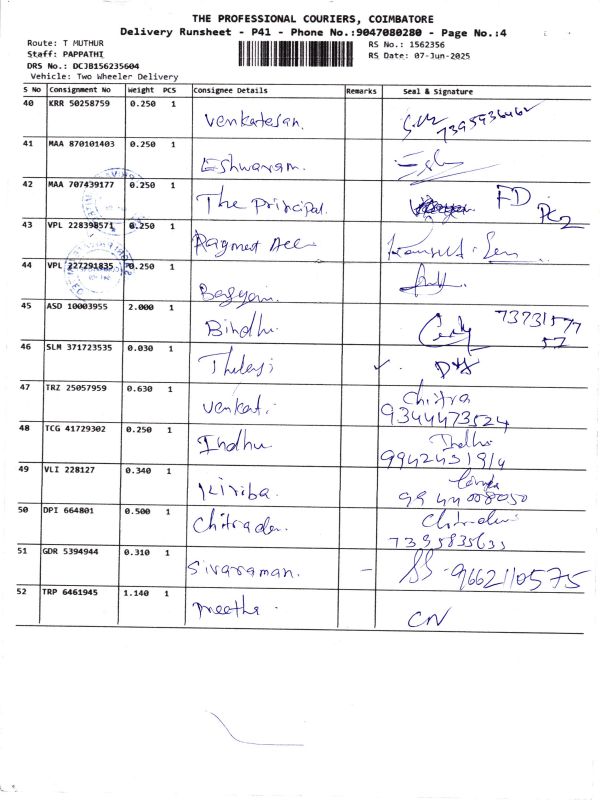 THE PROFESSIONAL COURIERS, COIMBATORE
Delivery Runsheet - P41 - Phone No.:9047080280 - Page No.:4
Route: T MUTHUR
RS No.: 1562356
Staff: PAPPATHI
RS Date: 07-Jun-2025
DRS No.: DCJB156235604
Vehicle: Two Wheeler Delivery
S No Consignment No Weight PCS Consignee Details Remarks Seal & Signature
40 KRR 50258759 0.250 1 Venkatesan.
41 MAA 870101403 0.250 1 Eshwaram.
42 MAA 707439177 0.250 1 The Principal. FD
43 VPL 228398571 0.250 1
44 VPL 227291835 0.250 1
45 ASD 10003955 2.000 1 Bindhu.
46 SLM 371723535 0.030 1 Thulasi
47 TRZ 25057959 0.630 1 Venkat. Chitra
9344473524
48 TCG 41729302 0.250 1 Indhu Indhu
9942431914
49 VLI 228127 0.340 1
9944008050
50 DPI 664801 0.500 1 Chitradevi. Chitradevi
7395835633
51 GDR 5394944 0.310 1 Sivaraman. - SS - 9662110575
52 TRP 6461945 1.140 1 Preetha. CN